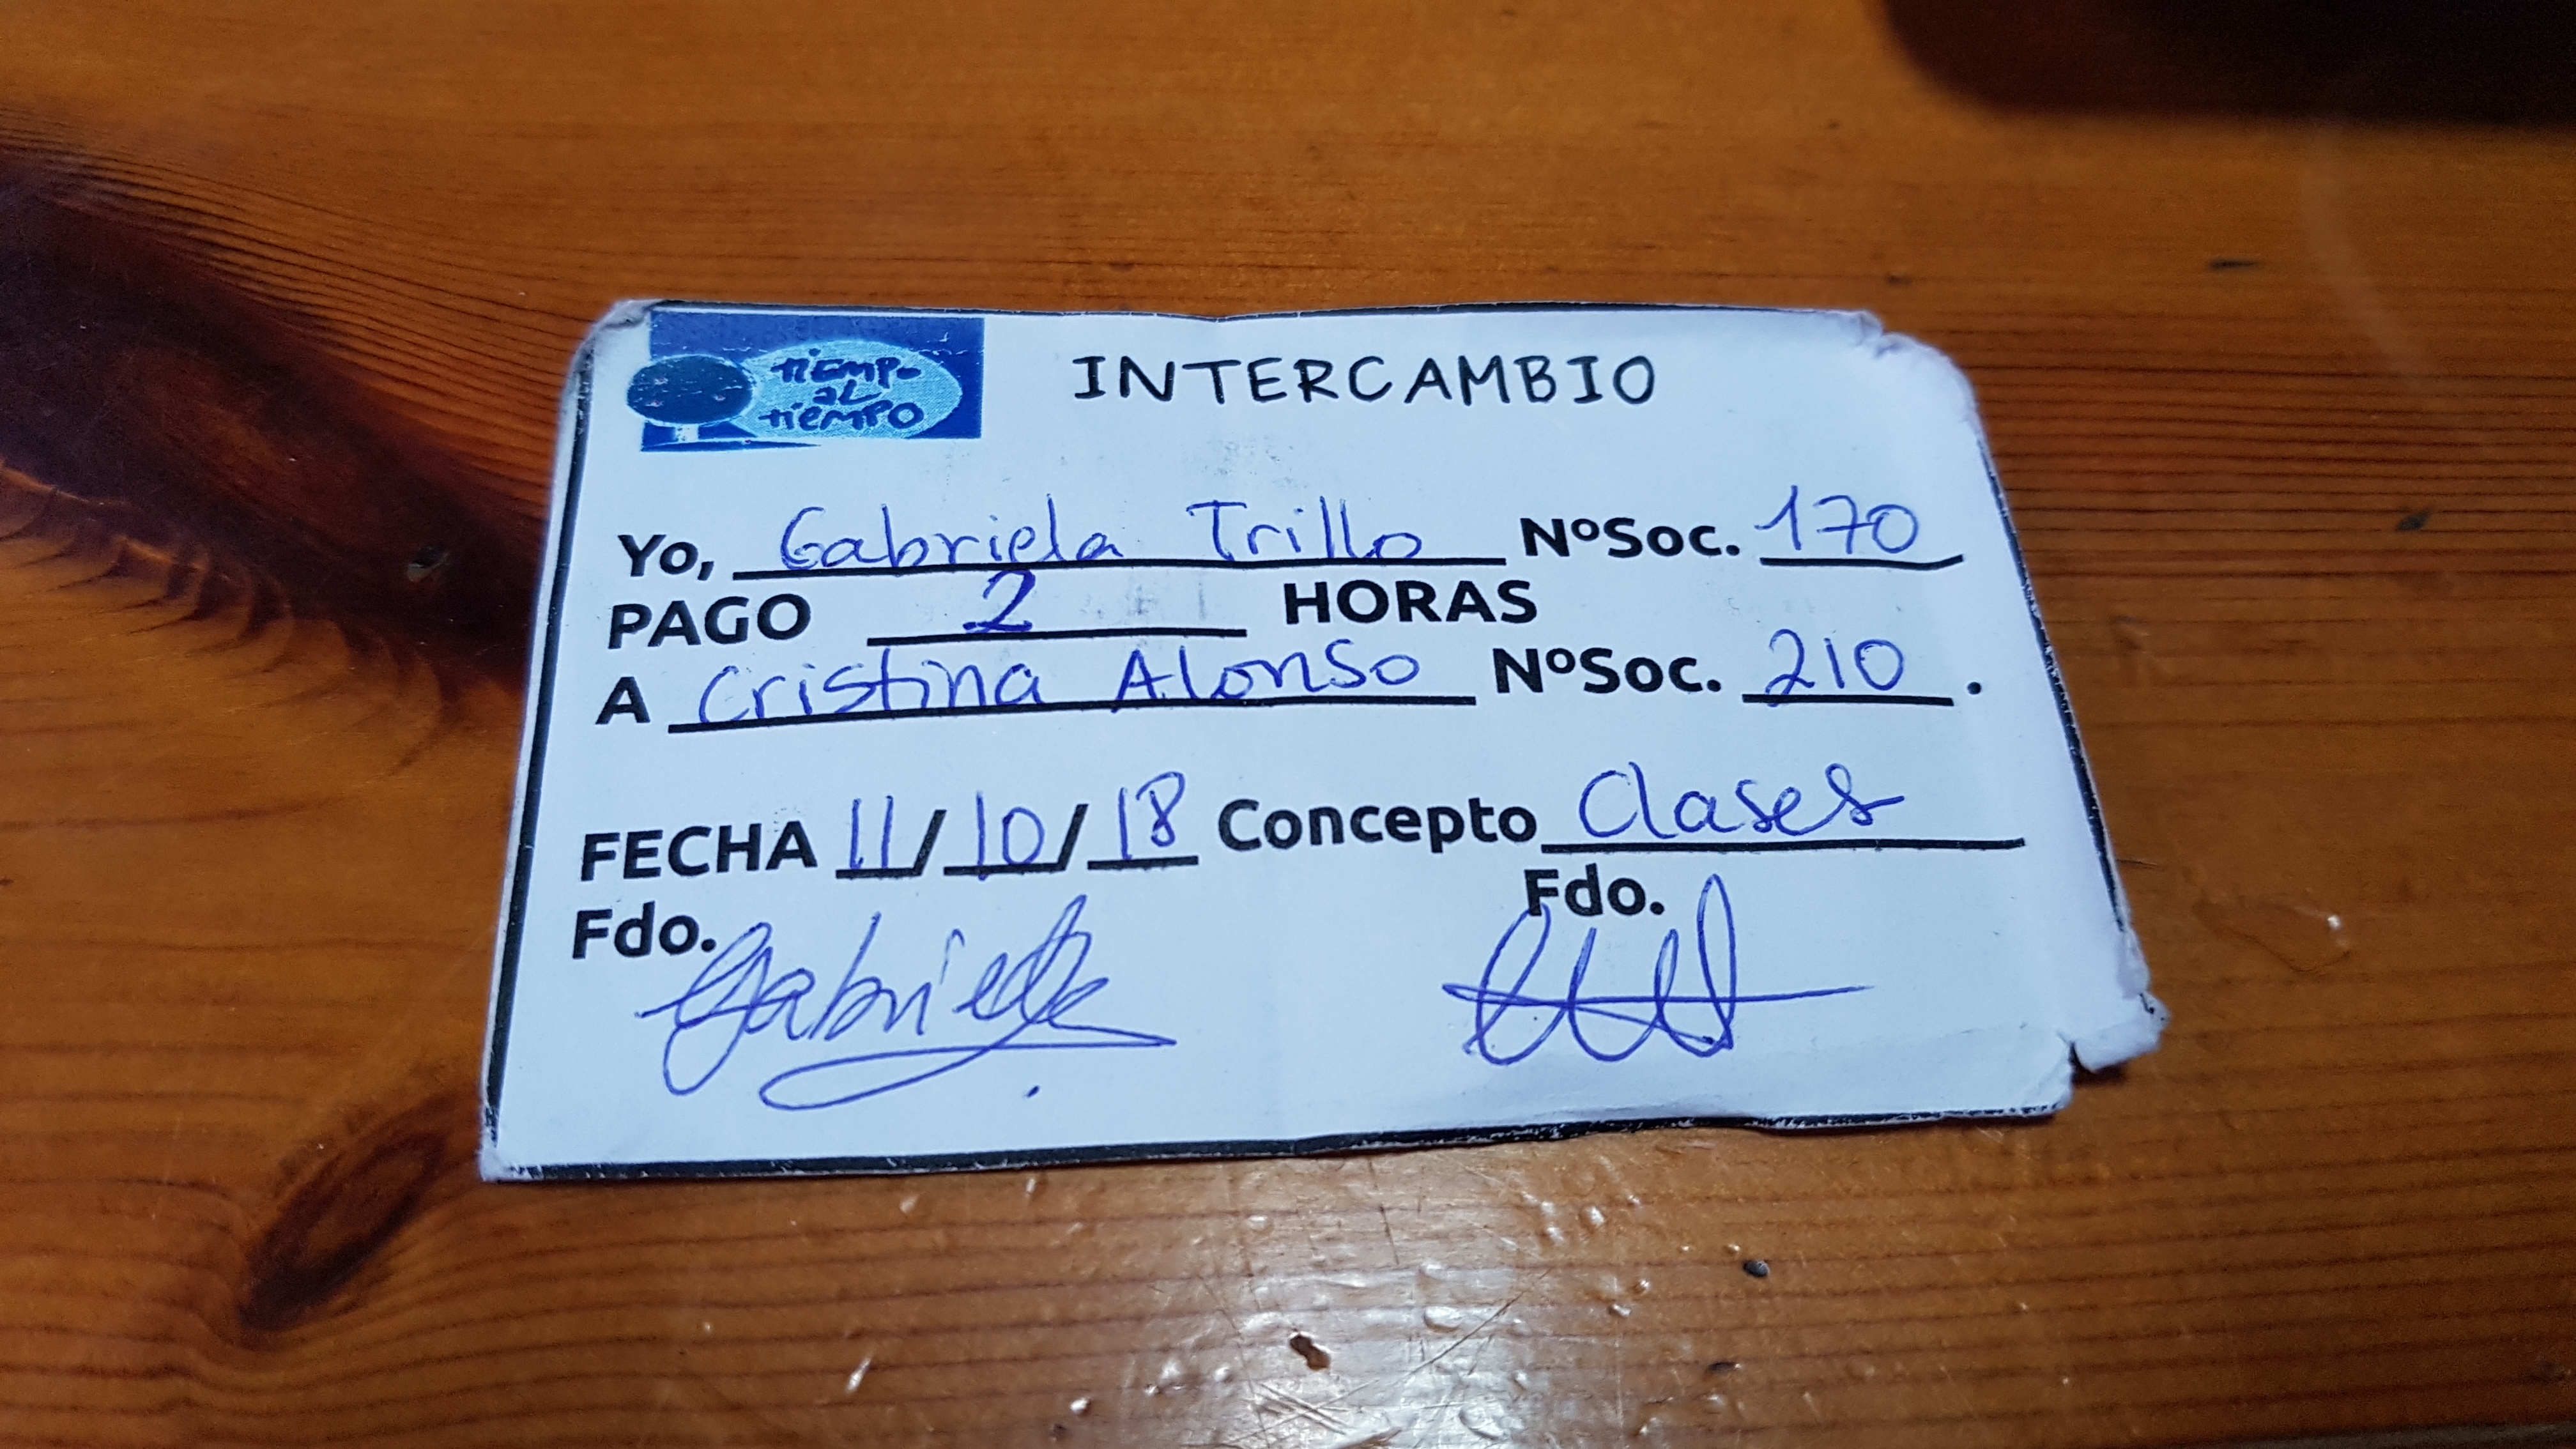 tiempo
al
tiempo
INTERCAMBIO
Yo, Gabriela Trillo NºSoc. 170
PAGO 2 HORAS
A Cristina Alonso NºSoc. 210.
FECHA 11/10/18 Concepto Clases
Fdo. Gabriela Fdo.